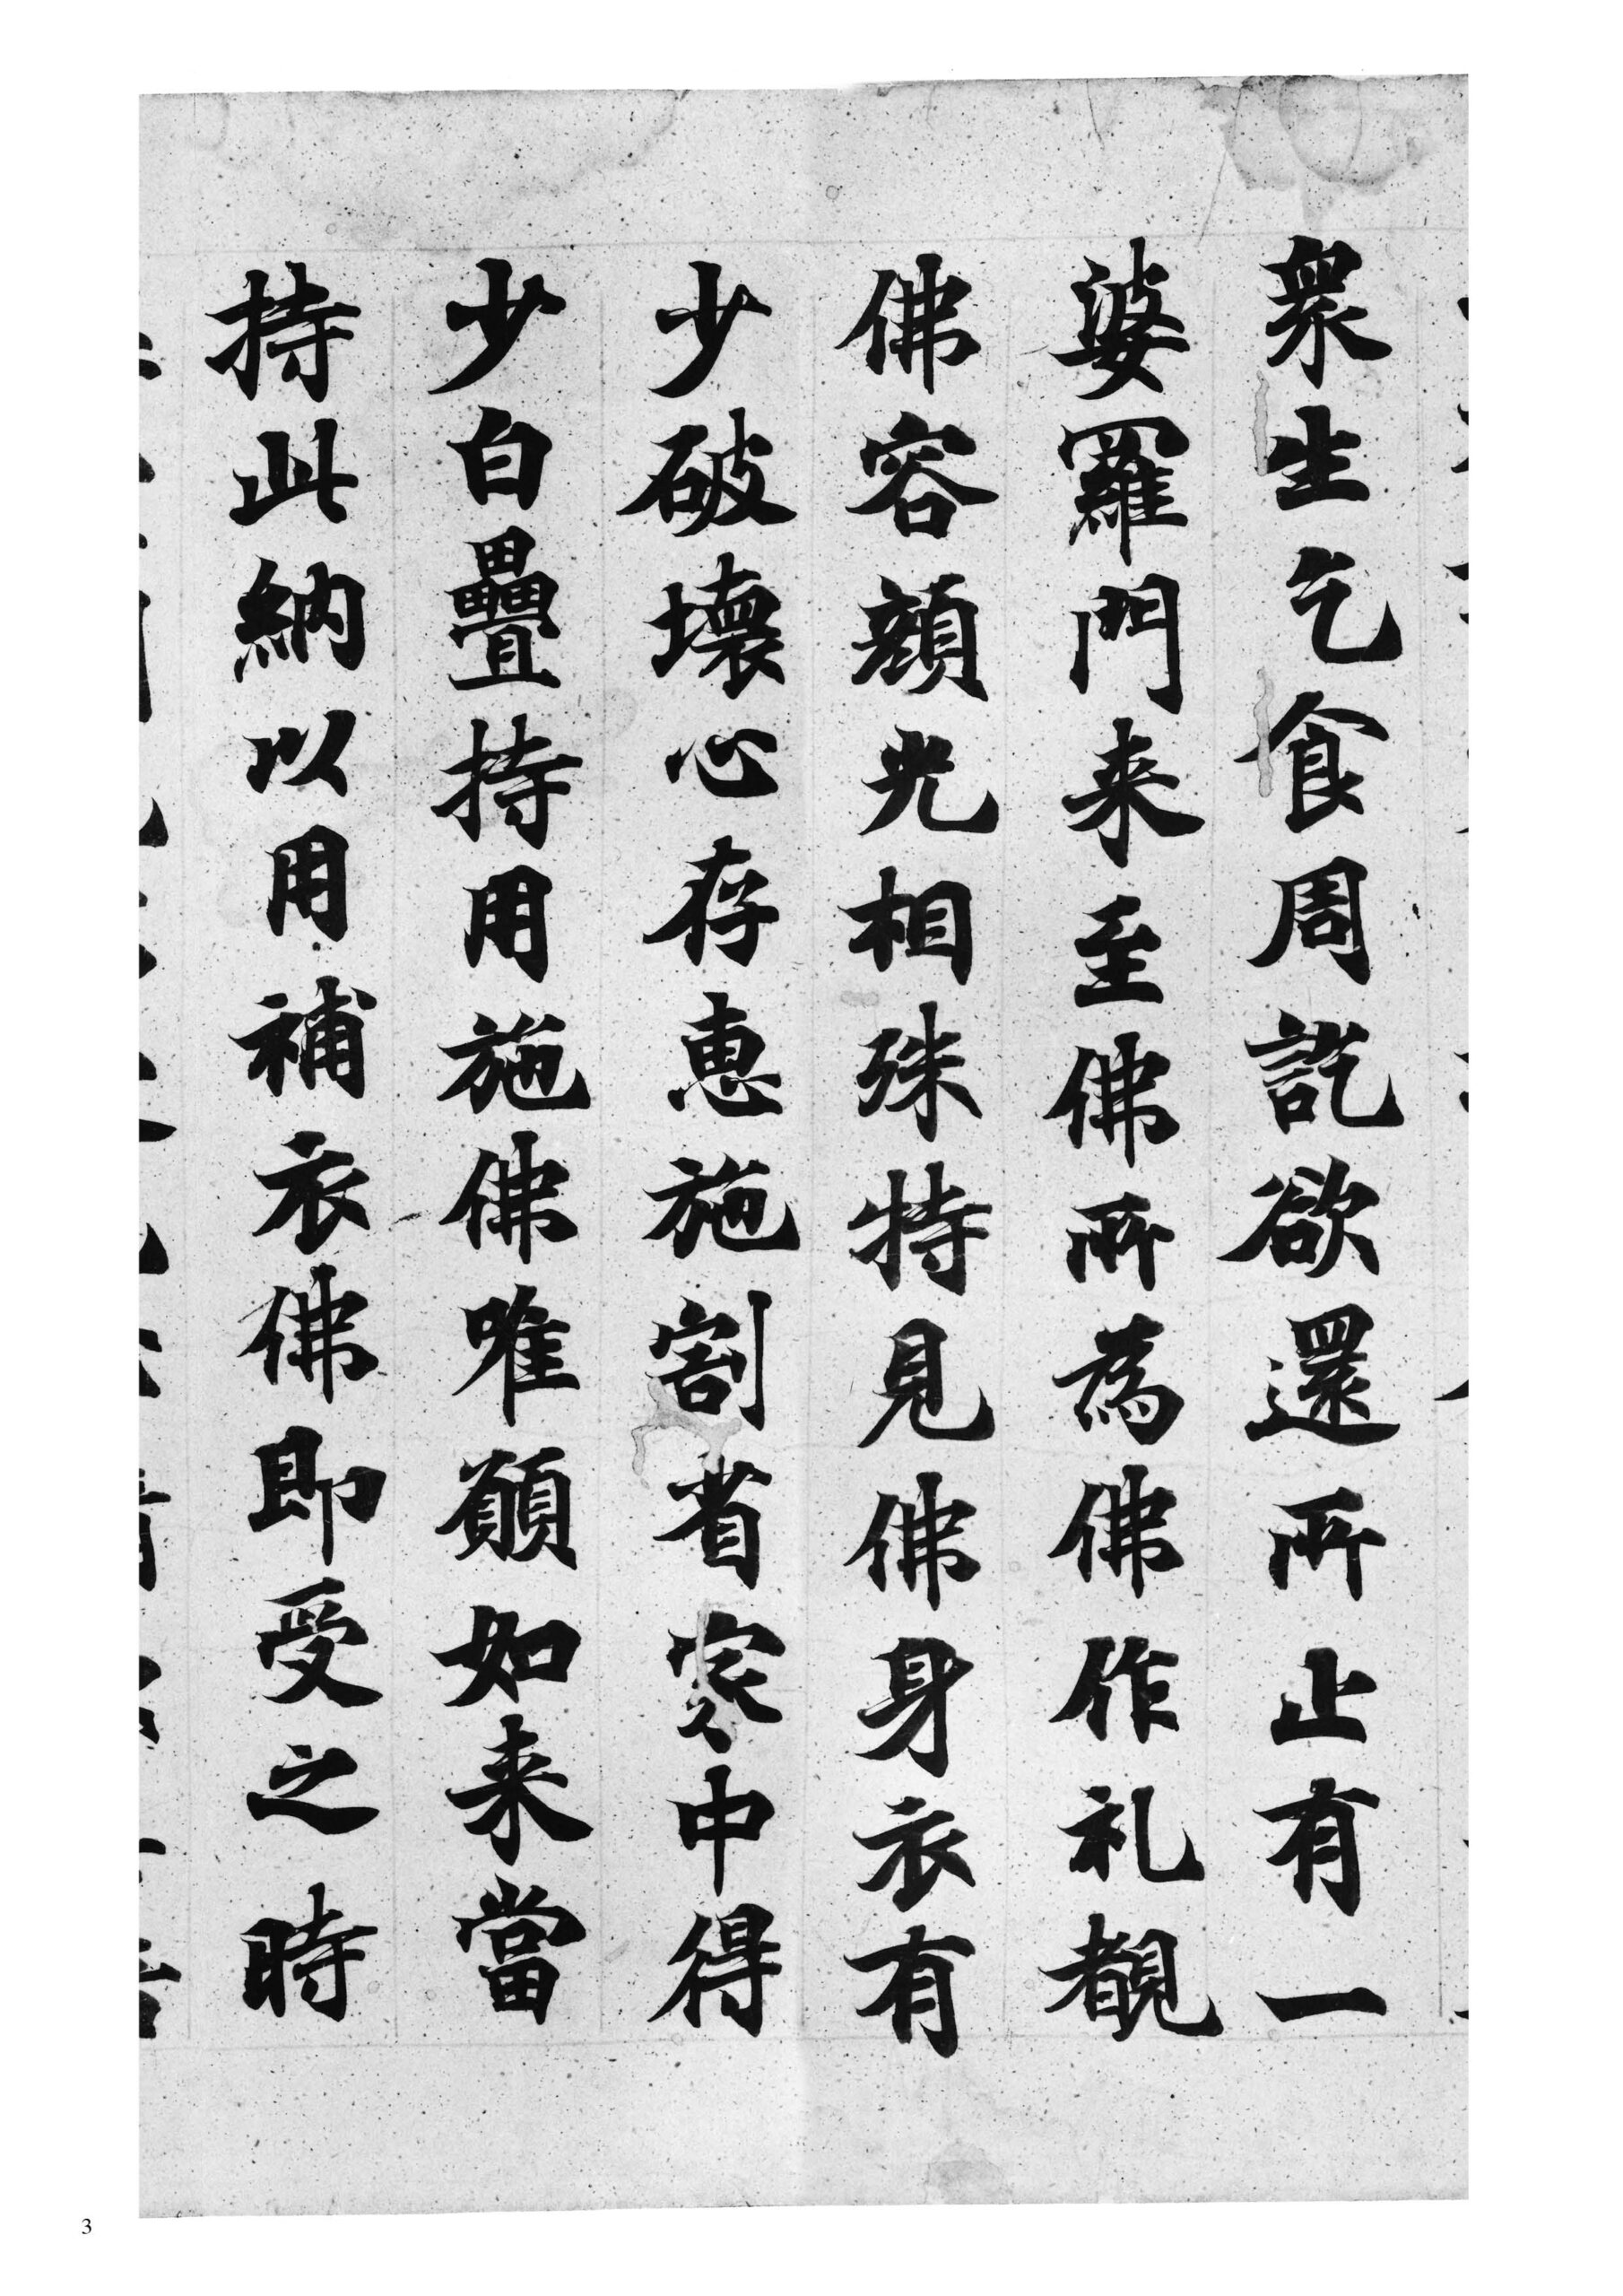 衆生乞食周訖欲還所止有一
婆羅門来至佛所為佛作礼覩
佛容顔光相殊特見佛身衣有
少破壞心存惠施割省家中得
少白疊持用施佛唯願如来當
持此納以用補衣佛即受之時
3